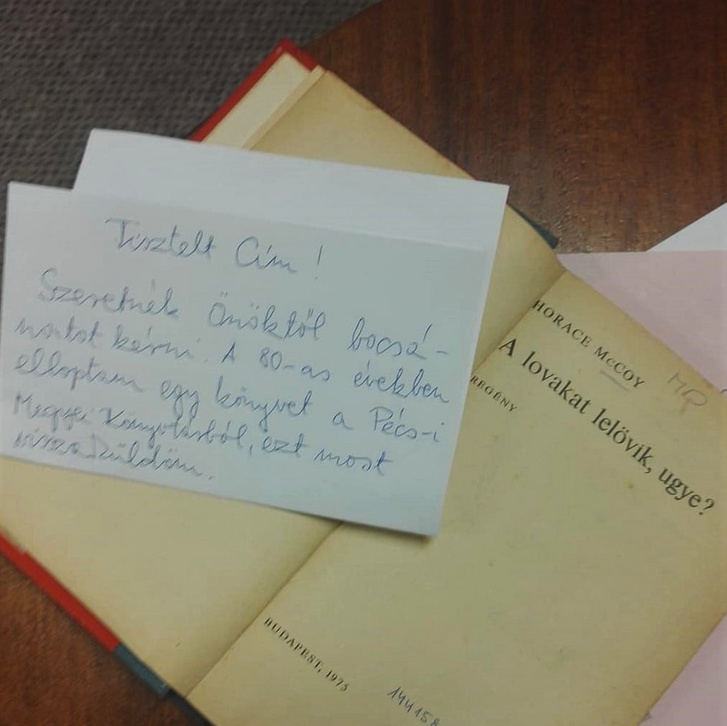 Tisztelt Cím!
Szeretnék Önöktől bocsá-
natot kérni. A 80-as években
elloptam egy könyvet a Pécs-i
Megyei Könyvtárból, ezt most
visszaküldöm.
HORACE McCOY
A lovakat lelövik, ugye?
REGÉNY
BUDAPEST, 1975
144158